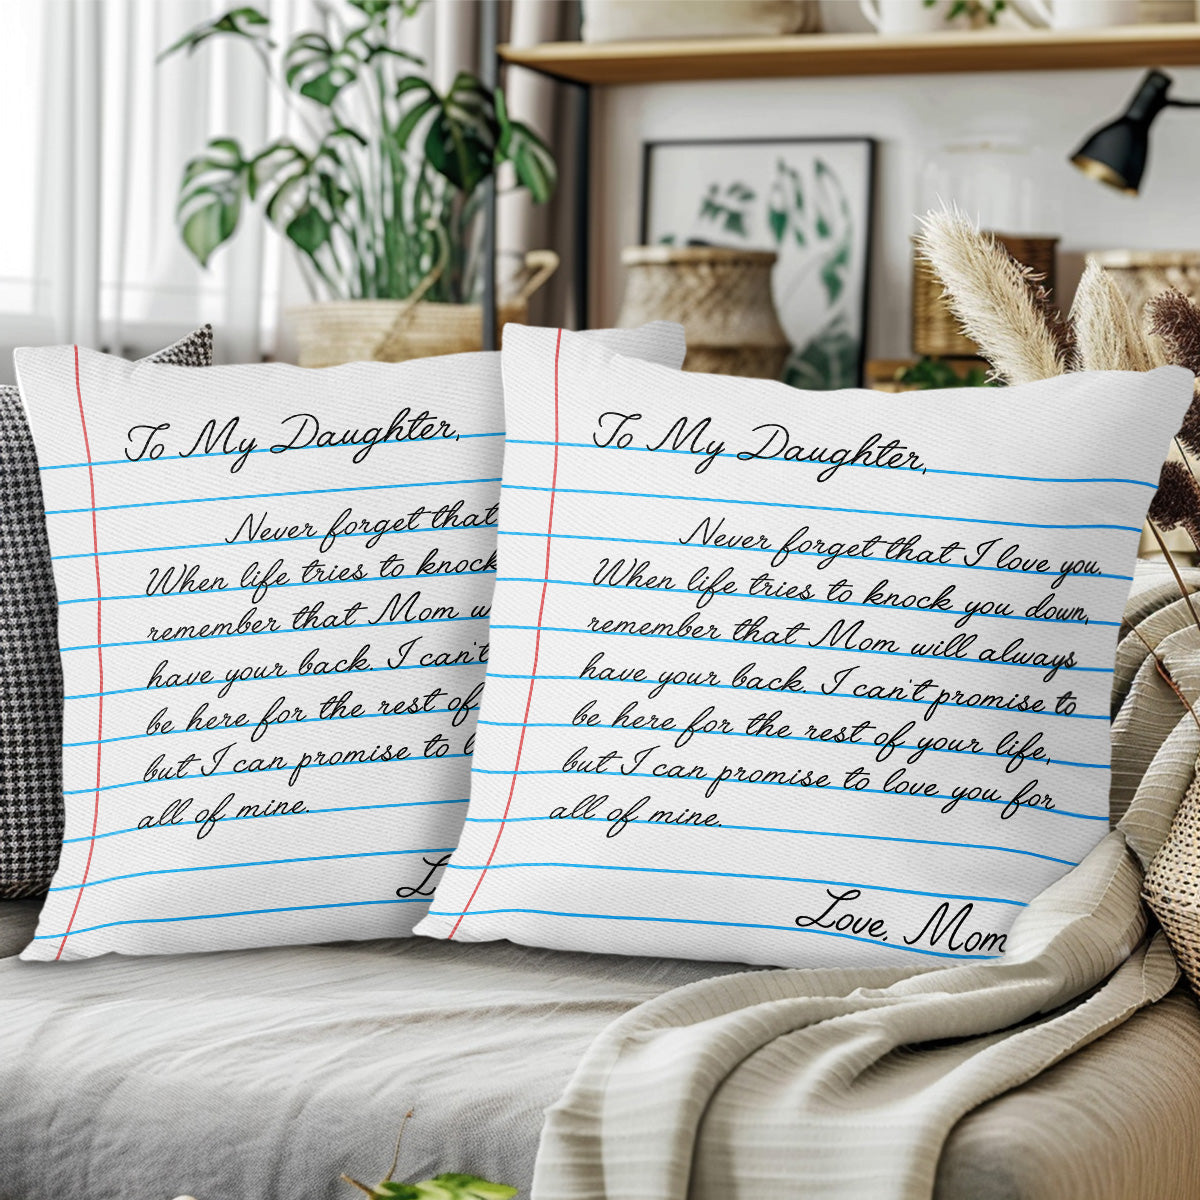 To My Daughter,
Never forget that
When life tries to knock
remember that Mom
have your back. I can't
be here for the rest of
but I can promise to
all of mine.
To My Daughter,
Never forget that I love you.
When life tries to knock you down,
remember that Mom will always
have your back. I can't promise to
be here for the rest of your life,
but I can promise to love you for
all of mine.
Love, Mom